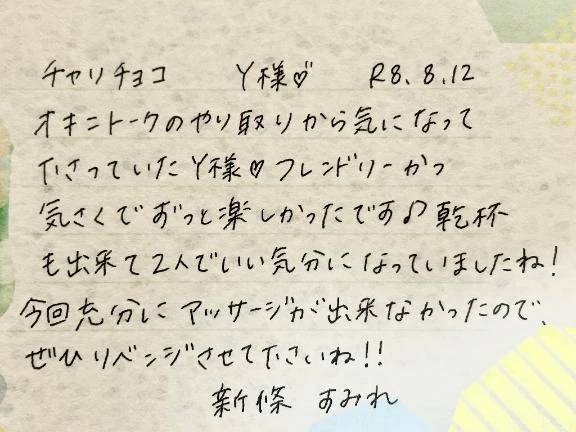 チャリチョコ Y様♡ R8.8.12
オキニトークのやり取りから気になって
下さっていたY様♡フレンドリーかつ
気さくでずっと楽しかったです♪乾杯
も出来て2人でいい気分になっていましたね!
今回充分にマッサージが出来なかったので、
ぜひリベンジさせて下さいね!!
新條 すみれ